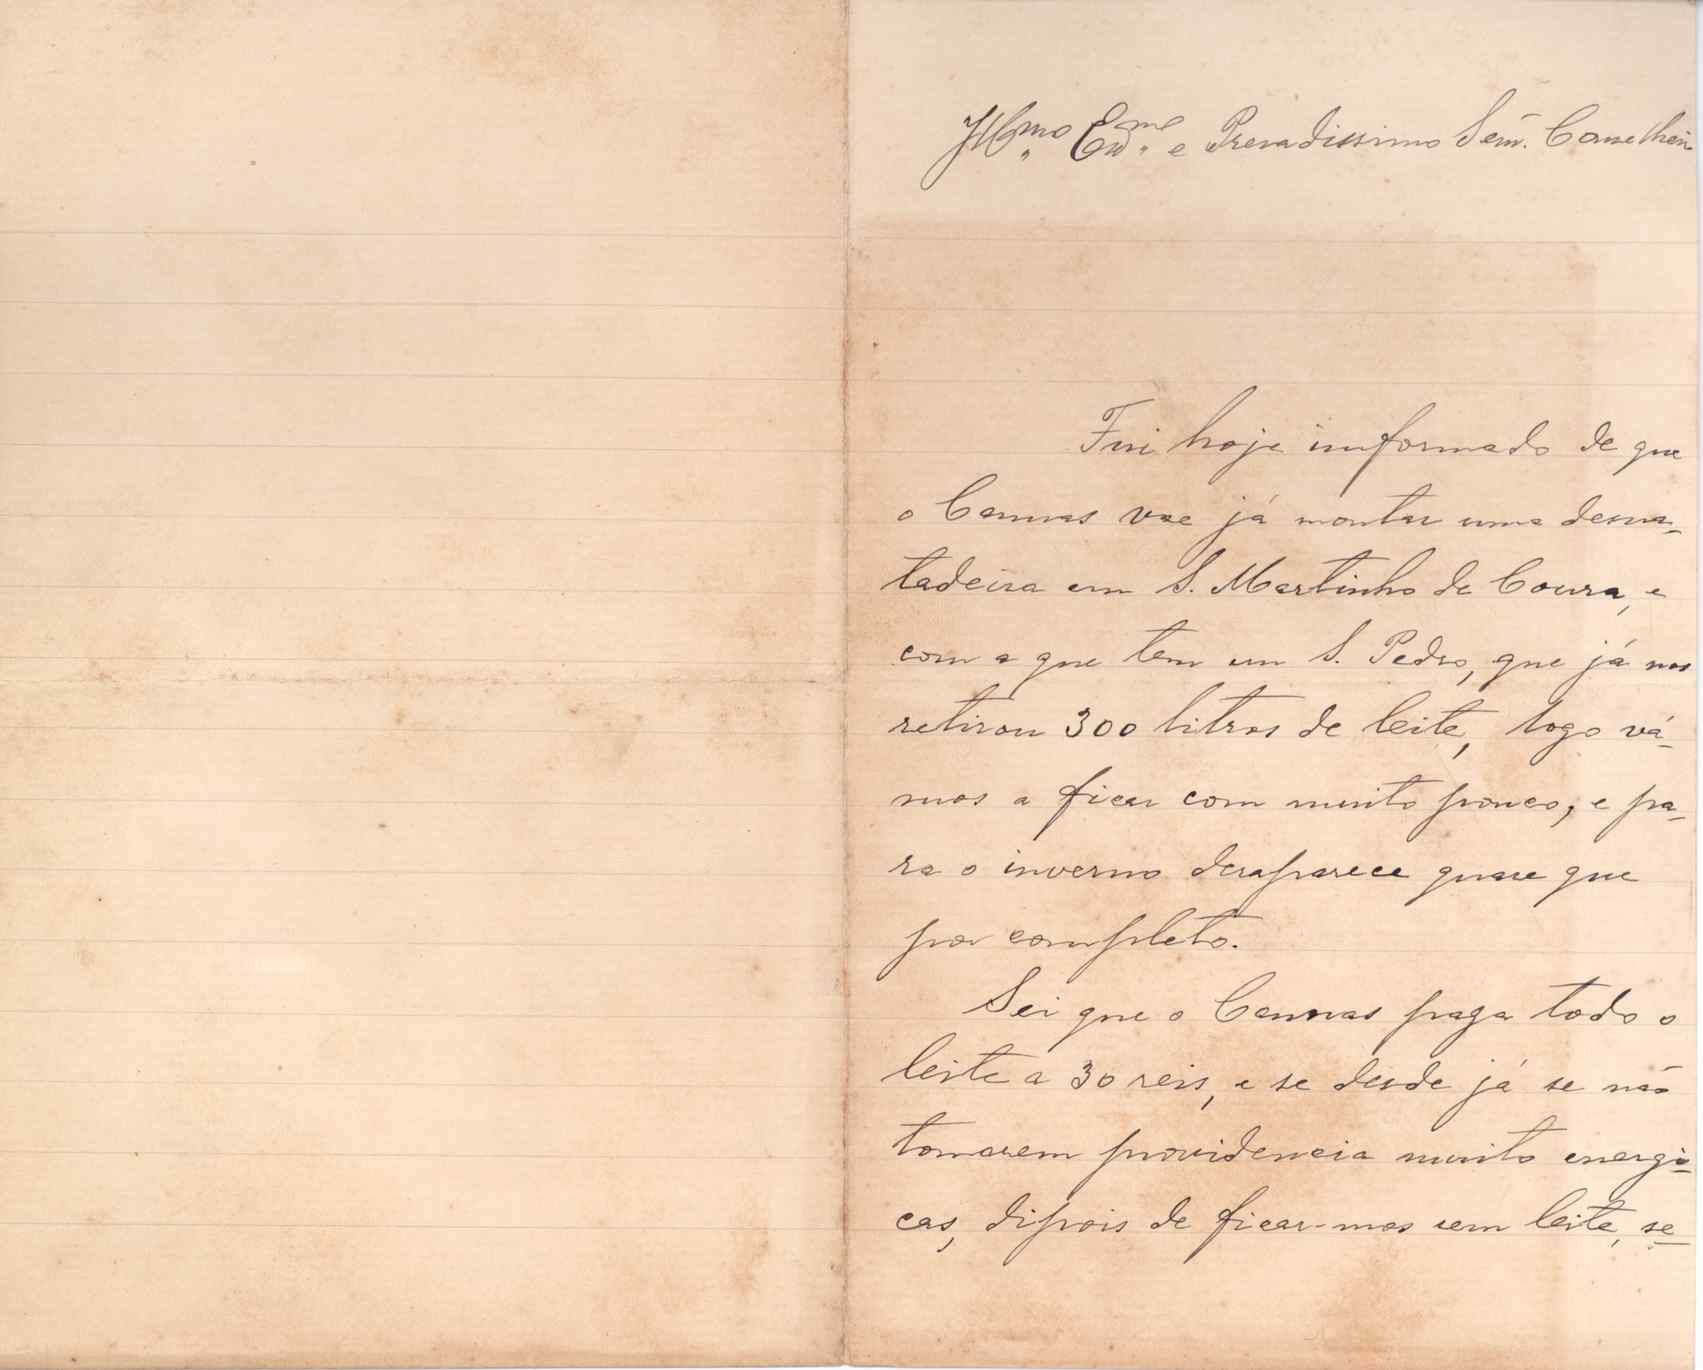 Illmo Exmo e Presadissimo Senr. Conselheiro
Fui hoje imformado de que
o Cannas vae já montar uma desna-
tadeira em S. Martinho de Coura, e
com a que tem em S. Pedro, que já nos
retirou 300 litros de leite, logo vá-
mos a ficar com muito pouco, e pa-
ra o inverno desaparece quase que
por completo.
Sei que o Cannas paga todo o
leite a 30 reis, e se desde já se não
tomarem providencia muito energi-
cas, dipois de ficar-mos sem leite, se-